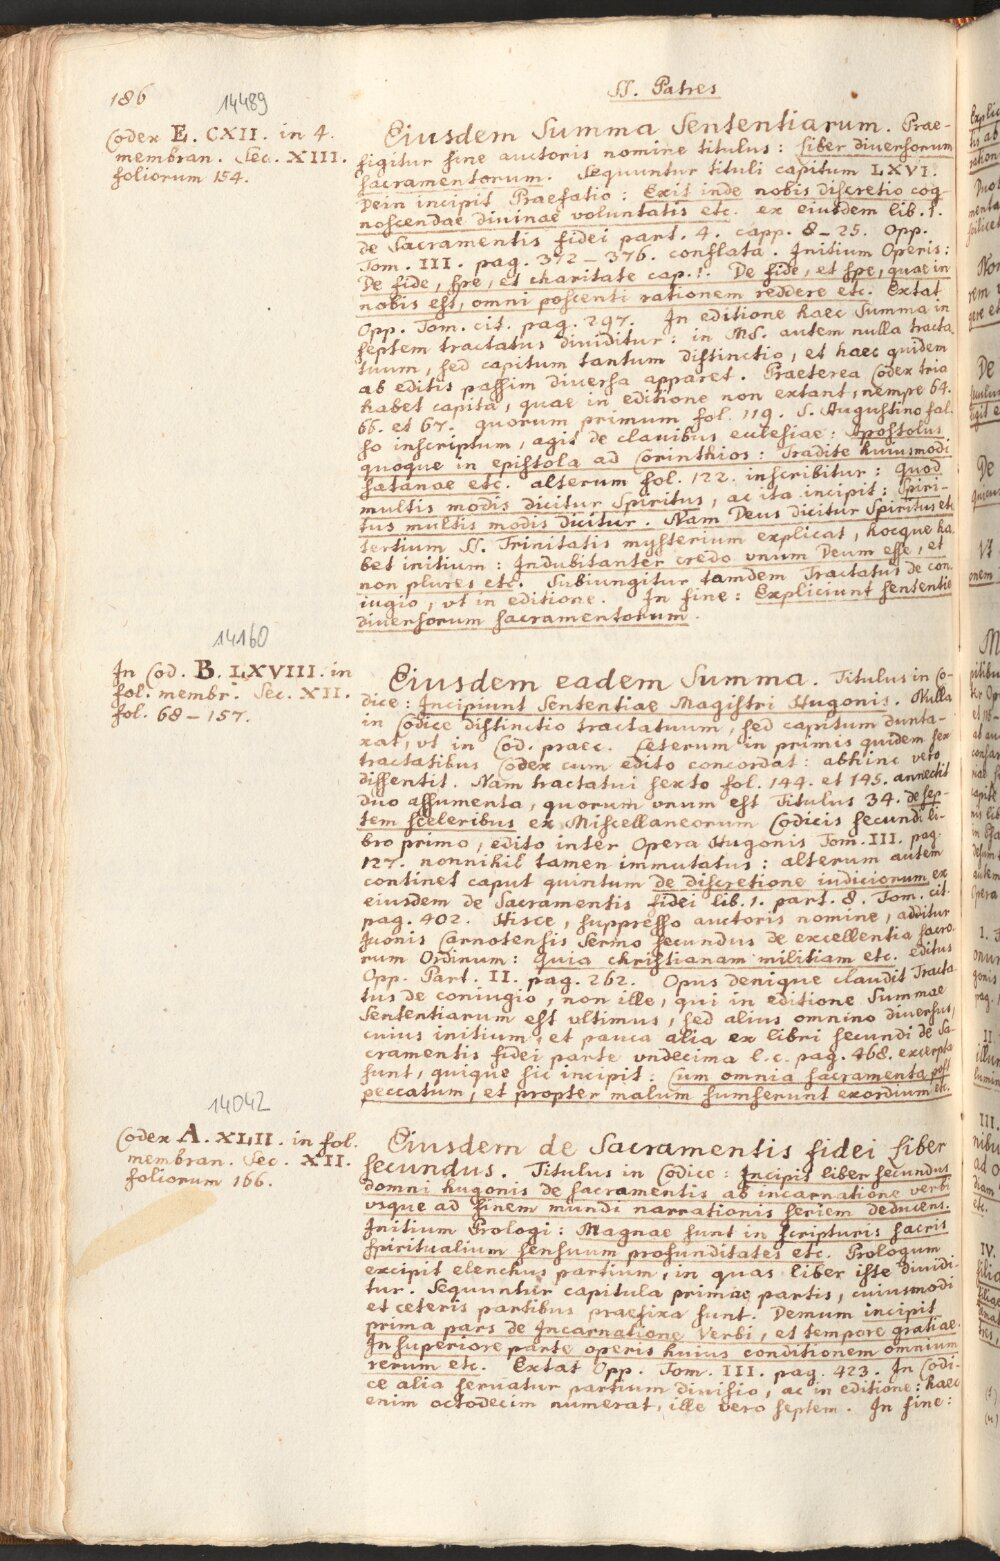 186
SS. Patres
14489
Codex E. CXII. in 4.
membran. Sec. XIII.
foliorum 154.
Eiusdem Summa Sententiarum. Prae-
figitur sine auctoris nomine titulus: Liber diuersorum
sacramentorum. Sequuntur tituli capitum LXVI.
Dein incipit Praefatio: Exit inde nobis discretio cog-
noscendae diuinae voluntatis etc. ex eiusdem lib. 1.
de Sacramentis fidei part. 4. capp. 8-25. Opp.
Tom. III. pag. 372-376. conflata. Initium Operis:
De fide, spe, et charitate cap. 1. De fide, et spe, quae in
nobis est, omni poscenti rationem reddere etc. Extat
Opp. Tom. cit. pag. 297. In editione haec Summa in
septem tractatus diuiditur: in MS. autem nulla tracta
tuum, sed capitum tantum distinctio, et haec quidem
ab editis passim diuersa apparet. Praeterea Codex tria
habet capita, quae in editione non extant, nempe 64.
66. et 67. quorum primum fol. 119. S. Augustino fal-
so inscriptum, agit de clauibus ecclesiae: Apostolus
quoque in epistola ad Corinthios: Tradite huiusmodi
satanae etc. alterum fol. 122. inscribitur: Quod
multis modis dicitur Spiritus, ac ita incipit: Spiri-
tus multis modis dicitur. Nam Deus dicitur Spiritus etc
tertium SS. Trinitatis mysterium explicat, hocque ha
bet initium: Indubitanter credo vnum Deum esse, et
non plures etc. Subiungitur tamdem Tractatus de con
iugio, vt in editione. In fine: Expliciunt sententie
diuersorum sacramentorum.
14160
In Cod. B. LXVIII. in
fol. membr. Sec. XII.
fol. 68-157.
Eiusdem eadem Summa. Titulus in Co-
dice: Incipiunt Sententiae Magistri Hugonis. Nulla
in Codice distinctio tractatuum, sed capitum dunta-
xat, vt in Cod. praec. Ceterum in primis quidem sex
tractatibus Codex cum edito concordat: abhinc vero
dissentit. Nam tractatui sexto fol. 144. et 145. annectit
duo assumenta, quorum vnum est Titulus 34. de sep-
tem sceleribus ex Miscellaneorum Codicis secundi li-
bro primo, edito inter Opera Hugonis Tom. III. pag.
127. nonnihil tamen immutatus: alterum autem
continet caput quintum de discretione iudiciorum ex
eiusdem de Sacramentis fidei lib. 1. part. 8. Tom. cit.
pag. 402. Hisce, suppresso auctoris nomine, additur
Iuonis Carnotensis Sermo secundus de excellentia sacro-
rum Ordinum: Quia christianam militiam etc. editus
Opp. Part. II. pag. 262. Opus denique claudit Tracta
tus de coniugio, non ille, qui in editione Summae
Sententiarum est vltimus, sed alius omnino diuersus,
cuius initium, et pauca alia ex libri secundi de Sa-
cramentis fidei parte vndecima l. c. pag. 468. excerpta
sunt, quique sic incipit: Cum omnia sacramenta post
peccatum, et propter malum sumserunt exordium etc.
14042
Codex A. XLII. in fol.
membran. Sec. XII.
foliorum 166.
Eiusdem de Sacramentis fidei Liber
secundus. Titulus in Codice: Incipit liber secundus
domni hugonis de sacramentis ab incarnatione verbi
vsque ad finem mundi narrationis seriem deducens.
Initium Prologi: Magnae sunt in scripturis sacris
spiritualium sensuum profunditates etc. Prologum
excipit elenchus partium, in quas liber iste diuidi-
tur. Sequuntur capitula primae partis, cuiusmodi
et ceteris partibus praefixa sunt. Demum incipit
prima pars de Incarnatione Verbi, et tempore gratiae.
In superiore parte operis huius conditionem omnium
rerum etc. Extat Opp. Tom. III. pag. 423. In Codi-
ce alia seruatur partium diuisio, ac in editione: haec
enim octodecim numerat, ille vero septem. In fine: